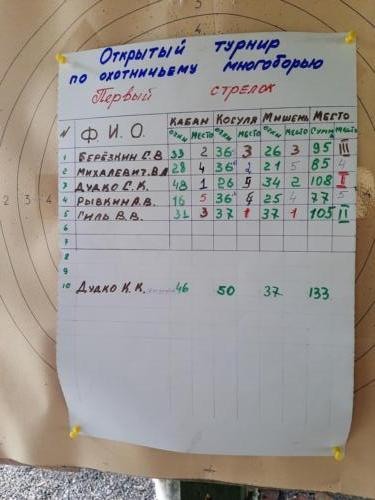 Открытый турнир
по охотничьему многоборью
Первый стрелок
N Ф. И. О. КАБАН КОСУЛЯ МИШЕНЬ МЕСТО
ОЧКИ МЕСТО ОЧКИ МЕСТО ОЧКИ МЕСТО СУММ МЕСТО
1 БЕРЁЗКИН С.В. 33 2 36 3 26 3 95 III
2 МИХАЛЕВИЧ В.А 28 4 36 2 21 5 85 4
3 ДУДКО С.К. 48 1 26 5 34 2 108 I
4 РЫВКИН А.В. 16 5 36 4 25 4 77 5
5 ГИЛЬ В.В. 31 3 37 1 37 1 105 II
6
7
8
9
10 ДУДКО К.К. 46 50 37 133